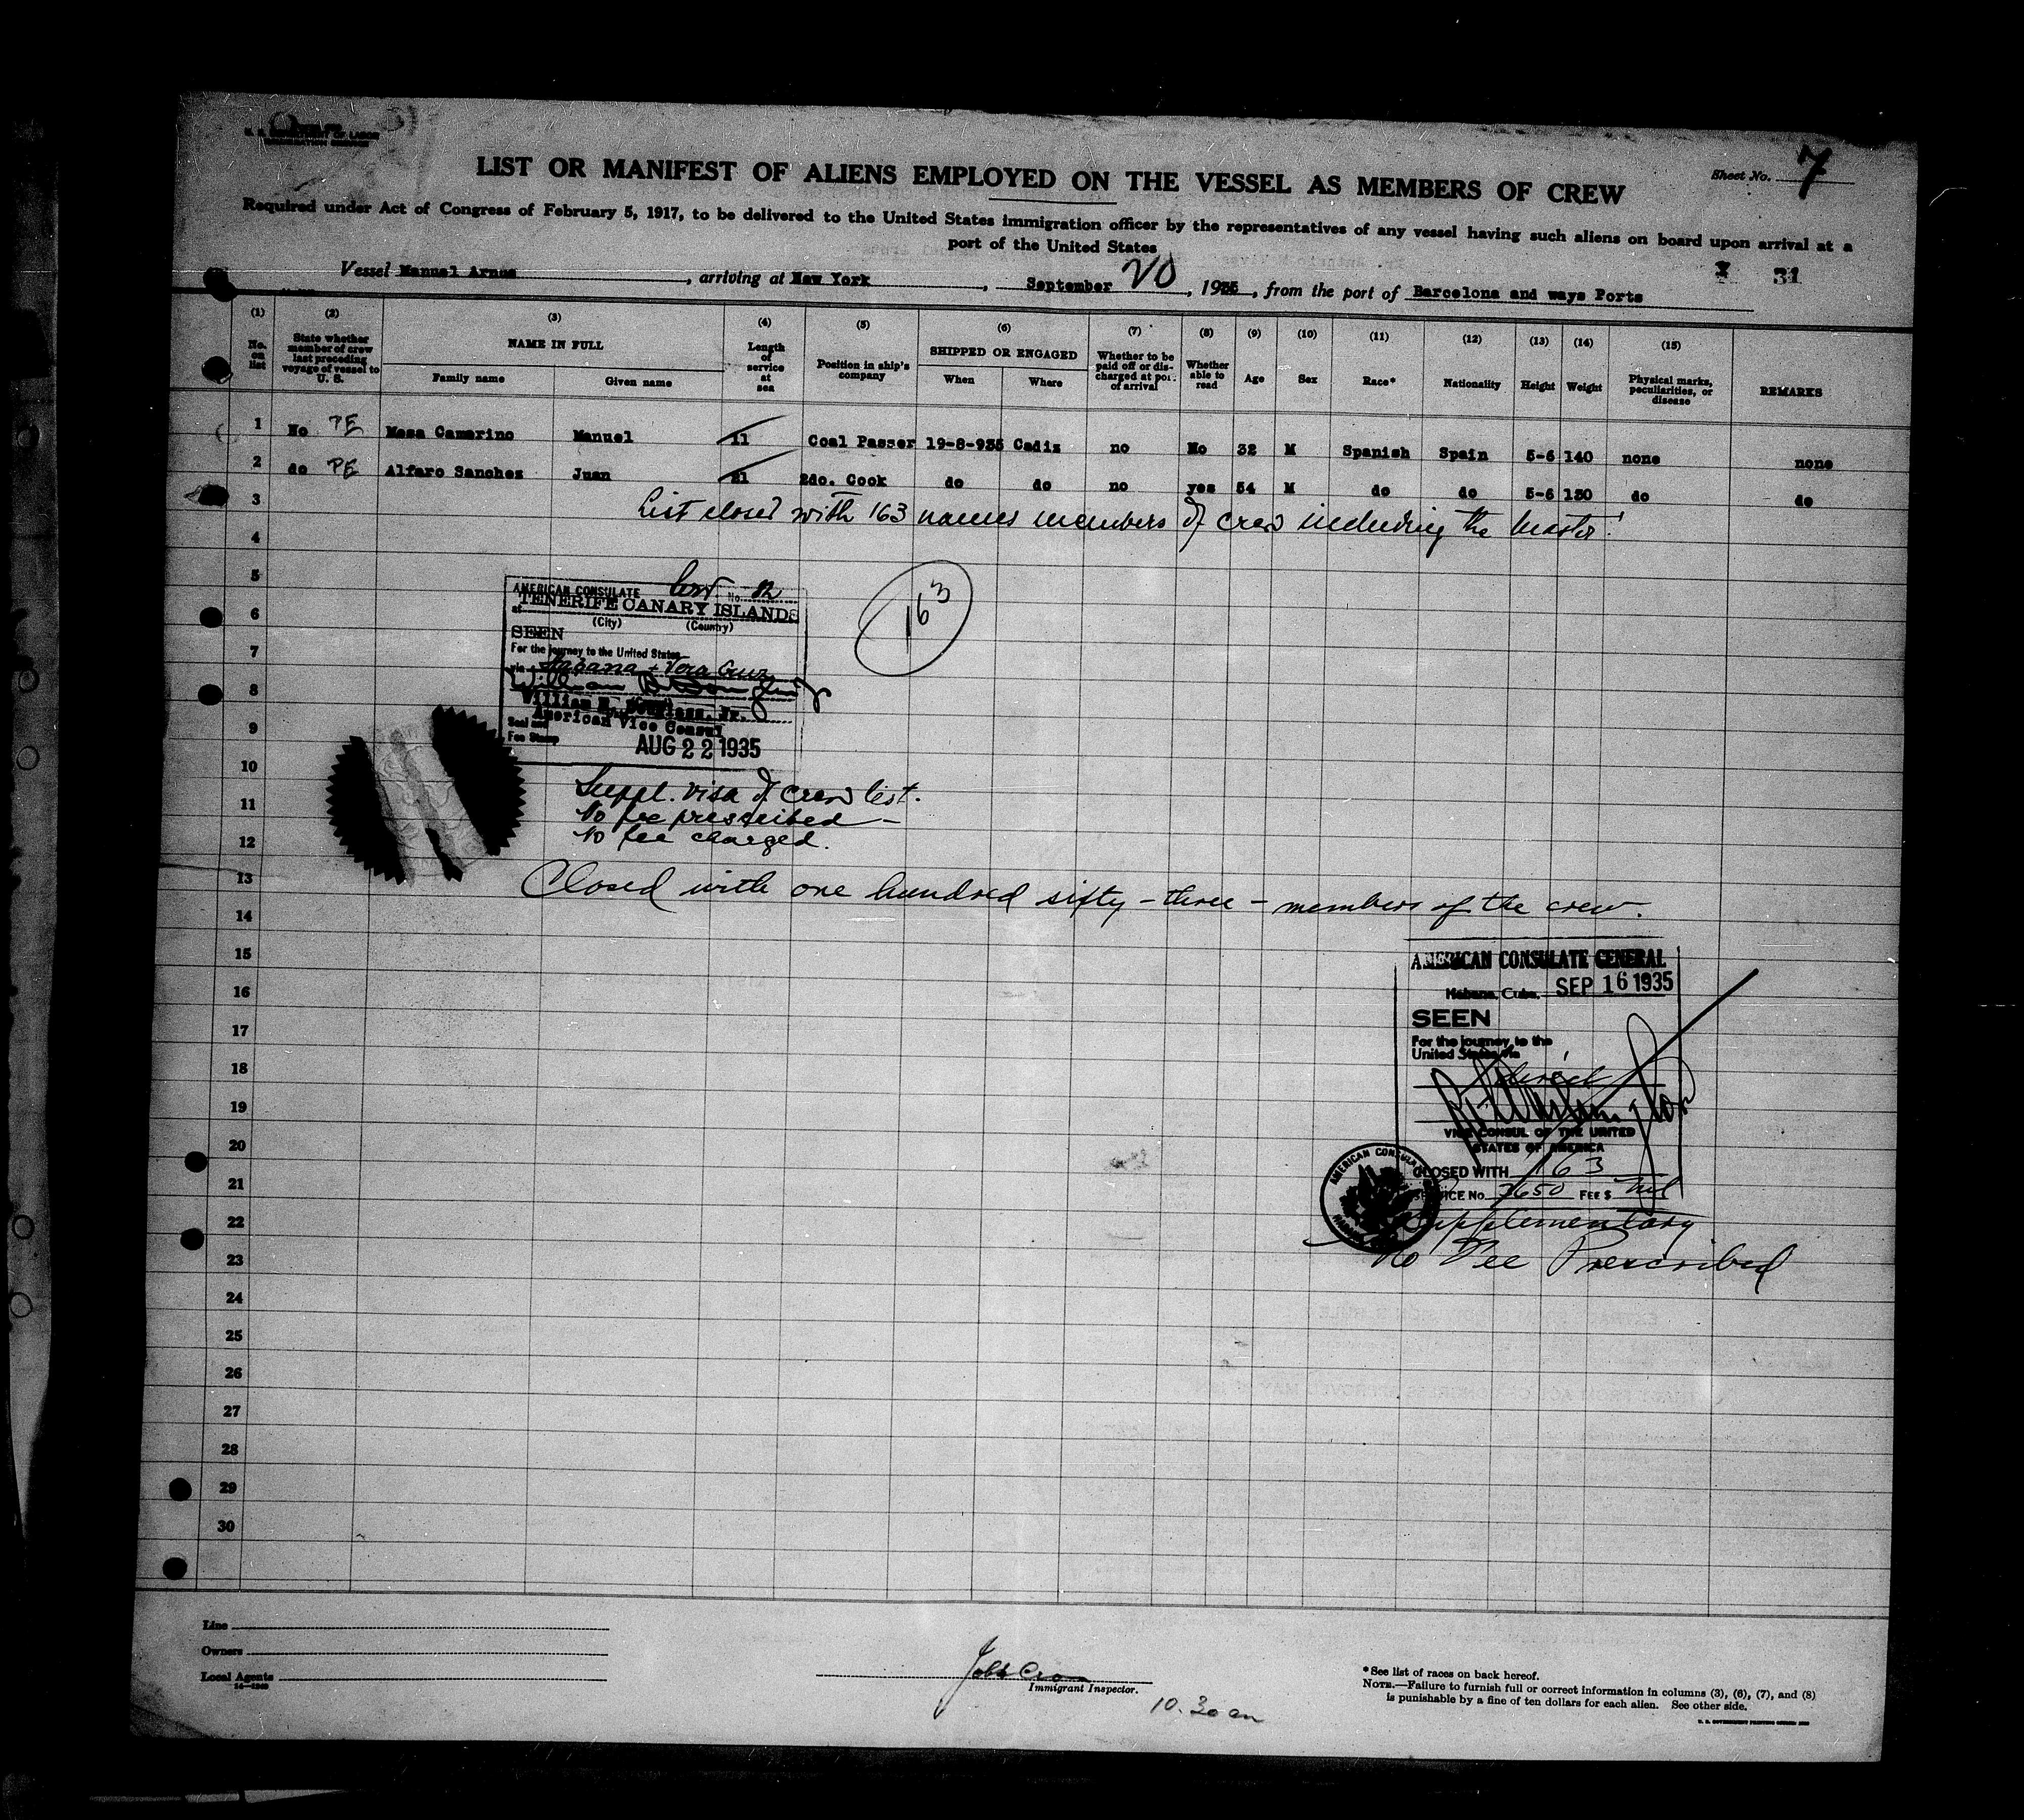 U. S. DEPARTMENT OF LABOR
IMMIGRATION SERVICE
Sheet No. 7
LIST OR MANIFEST OF ALIENS EMPLOYED ON THE VESSEL AS MEMBERS OF CREW
Required under Act of Congress of February 5, 1917, to be delivered to the United States immigration officer by the representatives of any vessel having such aliens on board upon arrival at a
port of the United States
Vessel Manuel Arnus, arriving at New York, September 20, 1935, from the port of Barcelona and ways Ports
31
(1) (2) (3) (4) (5) (6) (7) (8) (9) (10) (11) (12) (13) (14) (15)
No. on list
State whether member of crew last preceding voyage of vessel to U. S.
NAME IN FULL
Family name
Given name
Length of service at sea
Position in ship's company
SHIPPED OR ENGAGED
When
Where
Whether to be paid off or discharged at port of arrival
Whether able to read
Age
Sex
Race*
Nationality
Height
Weight
Physical marks, peculiarities, or disease
REMARKS
1 No PE Mesa Camarino Manuel 11 Coal Passer 19-8-935 Cadiz no No 32 M Spanish Spain 5-6 140 none none
2 do PE Alfaro Sanchez Juan 21 2do. Cook do do no yes 54 M do do 5-6 130 do do
3
List closed with 163 names members of crew including the Master.
4
5
6
7
8
9
10
11
12
13
14
15
16
17
18
19
20
21
22
23
24
25
26
27
28
29
30
163
AMERICAN CONSULATE No.
at TENERIFE CANARY ISLANDS
(City) (Country)
SEEN
For the journey to the United States
via Habana + Vera Cruz
American Vice Consul
Seal and
Fee Stamp
AUG 22 1935
Suppl. visa of crew list.
No fee prescribed -
No fee charged.
Closed with one hundred sifty - three - members of the crew.
AMERICAN CONSULATE GENERAL
Habana, Cuba. SEP 16 1935
SEEN
For the journey to the
United States via
direct
VICE CONSUL OF THE UNITED
STATES OF AMERICA
CLOSED WITH 163
SERVICE No. 7650 FEE $ nil
Supplementary
No Fee Prescribed
AMERICAN CONSULATE
Line
Owners
Local Agents
Immigrant Inspector.
10.30 am
*See list of races on back hereof.
NOTE.—Failure to furnish full or correct information in columns (3), (6), (7), and (8)
is punishable by a fine of ten dollars for each alien. See other side.
U. S. GOVERNMENT PRINTING OFFICE